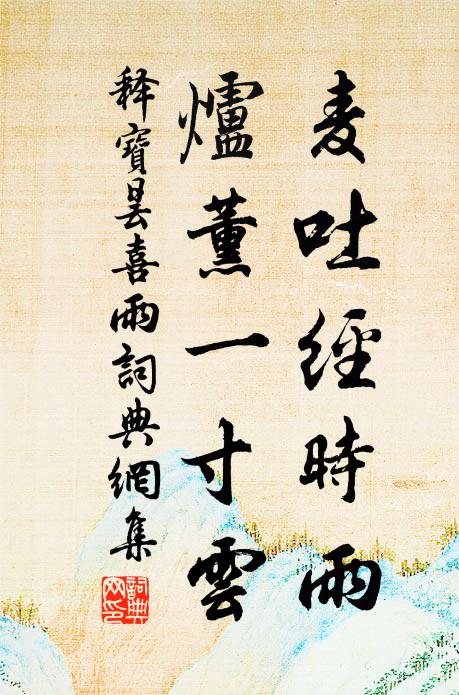 麦吐經時雨
爐薰一寸雲
释寶曇喜雨詞典網集
詞典